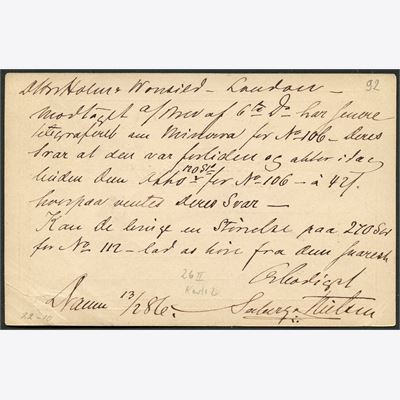 92
DHrr Holm & Wonsild - London -
modtaget af Brev af 6te Ds har Senere
telegraferet om Minerva for No 106 - Deres
Svar at den var forliden og atter idag
for No 106 - à 42/.
hvorpaa ventes Deres Svar -
Kan de bringe en Størrelse paa 270
for No 112 - lad os høre fra dem snarest
Ærbødigst
26 II
13/2 86.
22-10